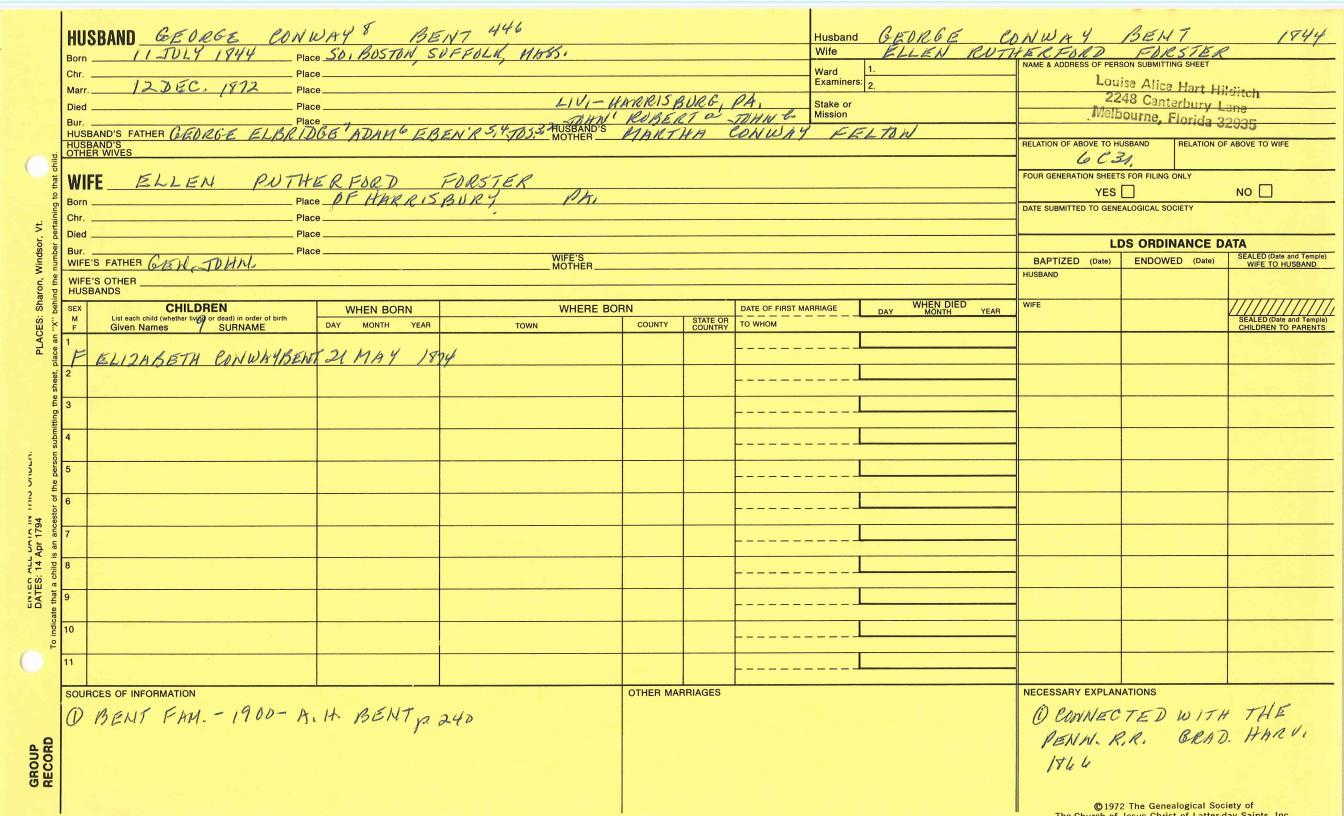 HUSBAND GEORGE CONWAY 8 BENT 446
Born 11 JULY 1844 Place SO. BOSTON, SUFFOLK, MASS.
Chr. Place
Marr. 12 DEC. 1872 Place
Died Place LIV. - HARRISBURG, PA.
Bur. Place JOHN ROBERT JOHN
HUSBAND'S FATHER GEORGE ELBRIDGE 7 ADAM 6 EBEN'R 5,4 JOS. HUSBAND'S MOTHER MARTHA CONWAY FELTON
HUSBAND'S OTHER WIVES
WIFE ELLEN RUTHERFORD FORSTER
Born Place OF HARRISBURY PA.
Chr. Place
Died Place
Bur. Place
WIFE'S FATHER GEN. JOHN. WIFE'S MOTHER
WIFE'S OTHER HUSBANDS
Husband GEORGE CONWAY BENT 1844
Wife ELLEN RUTHERFORD FORSTER
Ward Examiners: 1.
2.
Stake or Mission
NAME & ADDRESS OF PERSON SUBMITTING SHEET
Louise Alice Hart Hilditch
2248 Canterbury Lane
Melbourne, Florida 32935
RELATION OF ABOVE TO HUSBAND RELATION OF ABOVE TO WIFE
6 C 3r.
FOUR GENERATION SHEETS FOR FILING ONLY
YES NO
DATE SUBMITTED TO GENEALOGICAL SOCIETY
LDS ORDINANCE DATA
BAPTIZED (Date) ENDOWED (Date) SEALED (Date and Temple) WIFE TO HUSBAND
HUSBAND
WIFE
SEALED (Date and Temple) CHILDREN TO PARENTS
SEX M F
CHILDREN
List each child (whether living or dead) in order of birth
Given Names 9 SURNAME
WHEN BORN
DAY MONTH YEAR
WHERE BORN
TOWN COUNTY STATE OR COUNTRY
DATE OF FIRST MARRIAGE
TO WHOM
WHEN DIED
DAY MONTH YEAR
1
F ELIZABETH CONWAY BENT 21 MAY 1874
2
3
4
5
6
7
8
9
10
11
SOURCES OF INFORMATION
① BENT FAM. - 1900 - A. H. BENT p 240
OTHER MARRIAGES
NECESSARY EXPLANATIONS
① CONNECTED WITH THE
PENN. R.R. GRAD. HARV.
1866
©1972 The Genealogical Society of
The Church of Jesus Christ of Latter-day Saints, Inc.
PLACES: Sharon, Windsor, Vt.
ENTER ALL DATA IN THIS ORDER:
DATES: 14 Apr 1794
To indicate that a child is an ancestor of the person submitting the sheet, place an "X" behind the number pertaining to that child.
GROUP RECORD